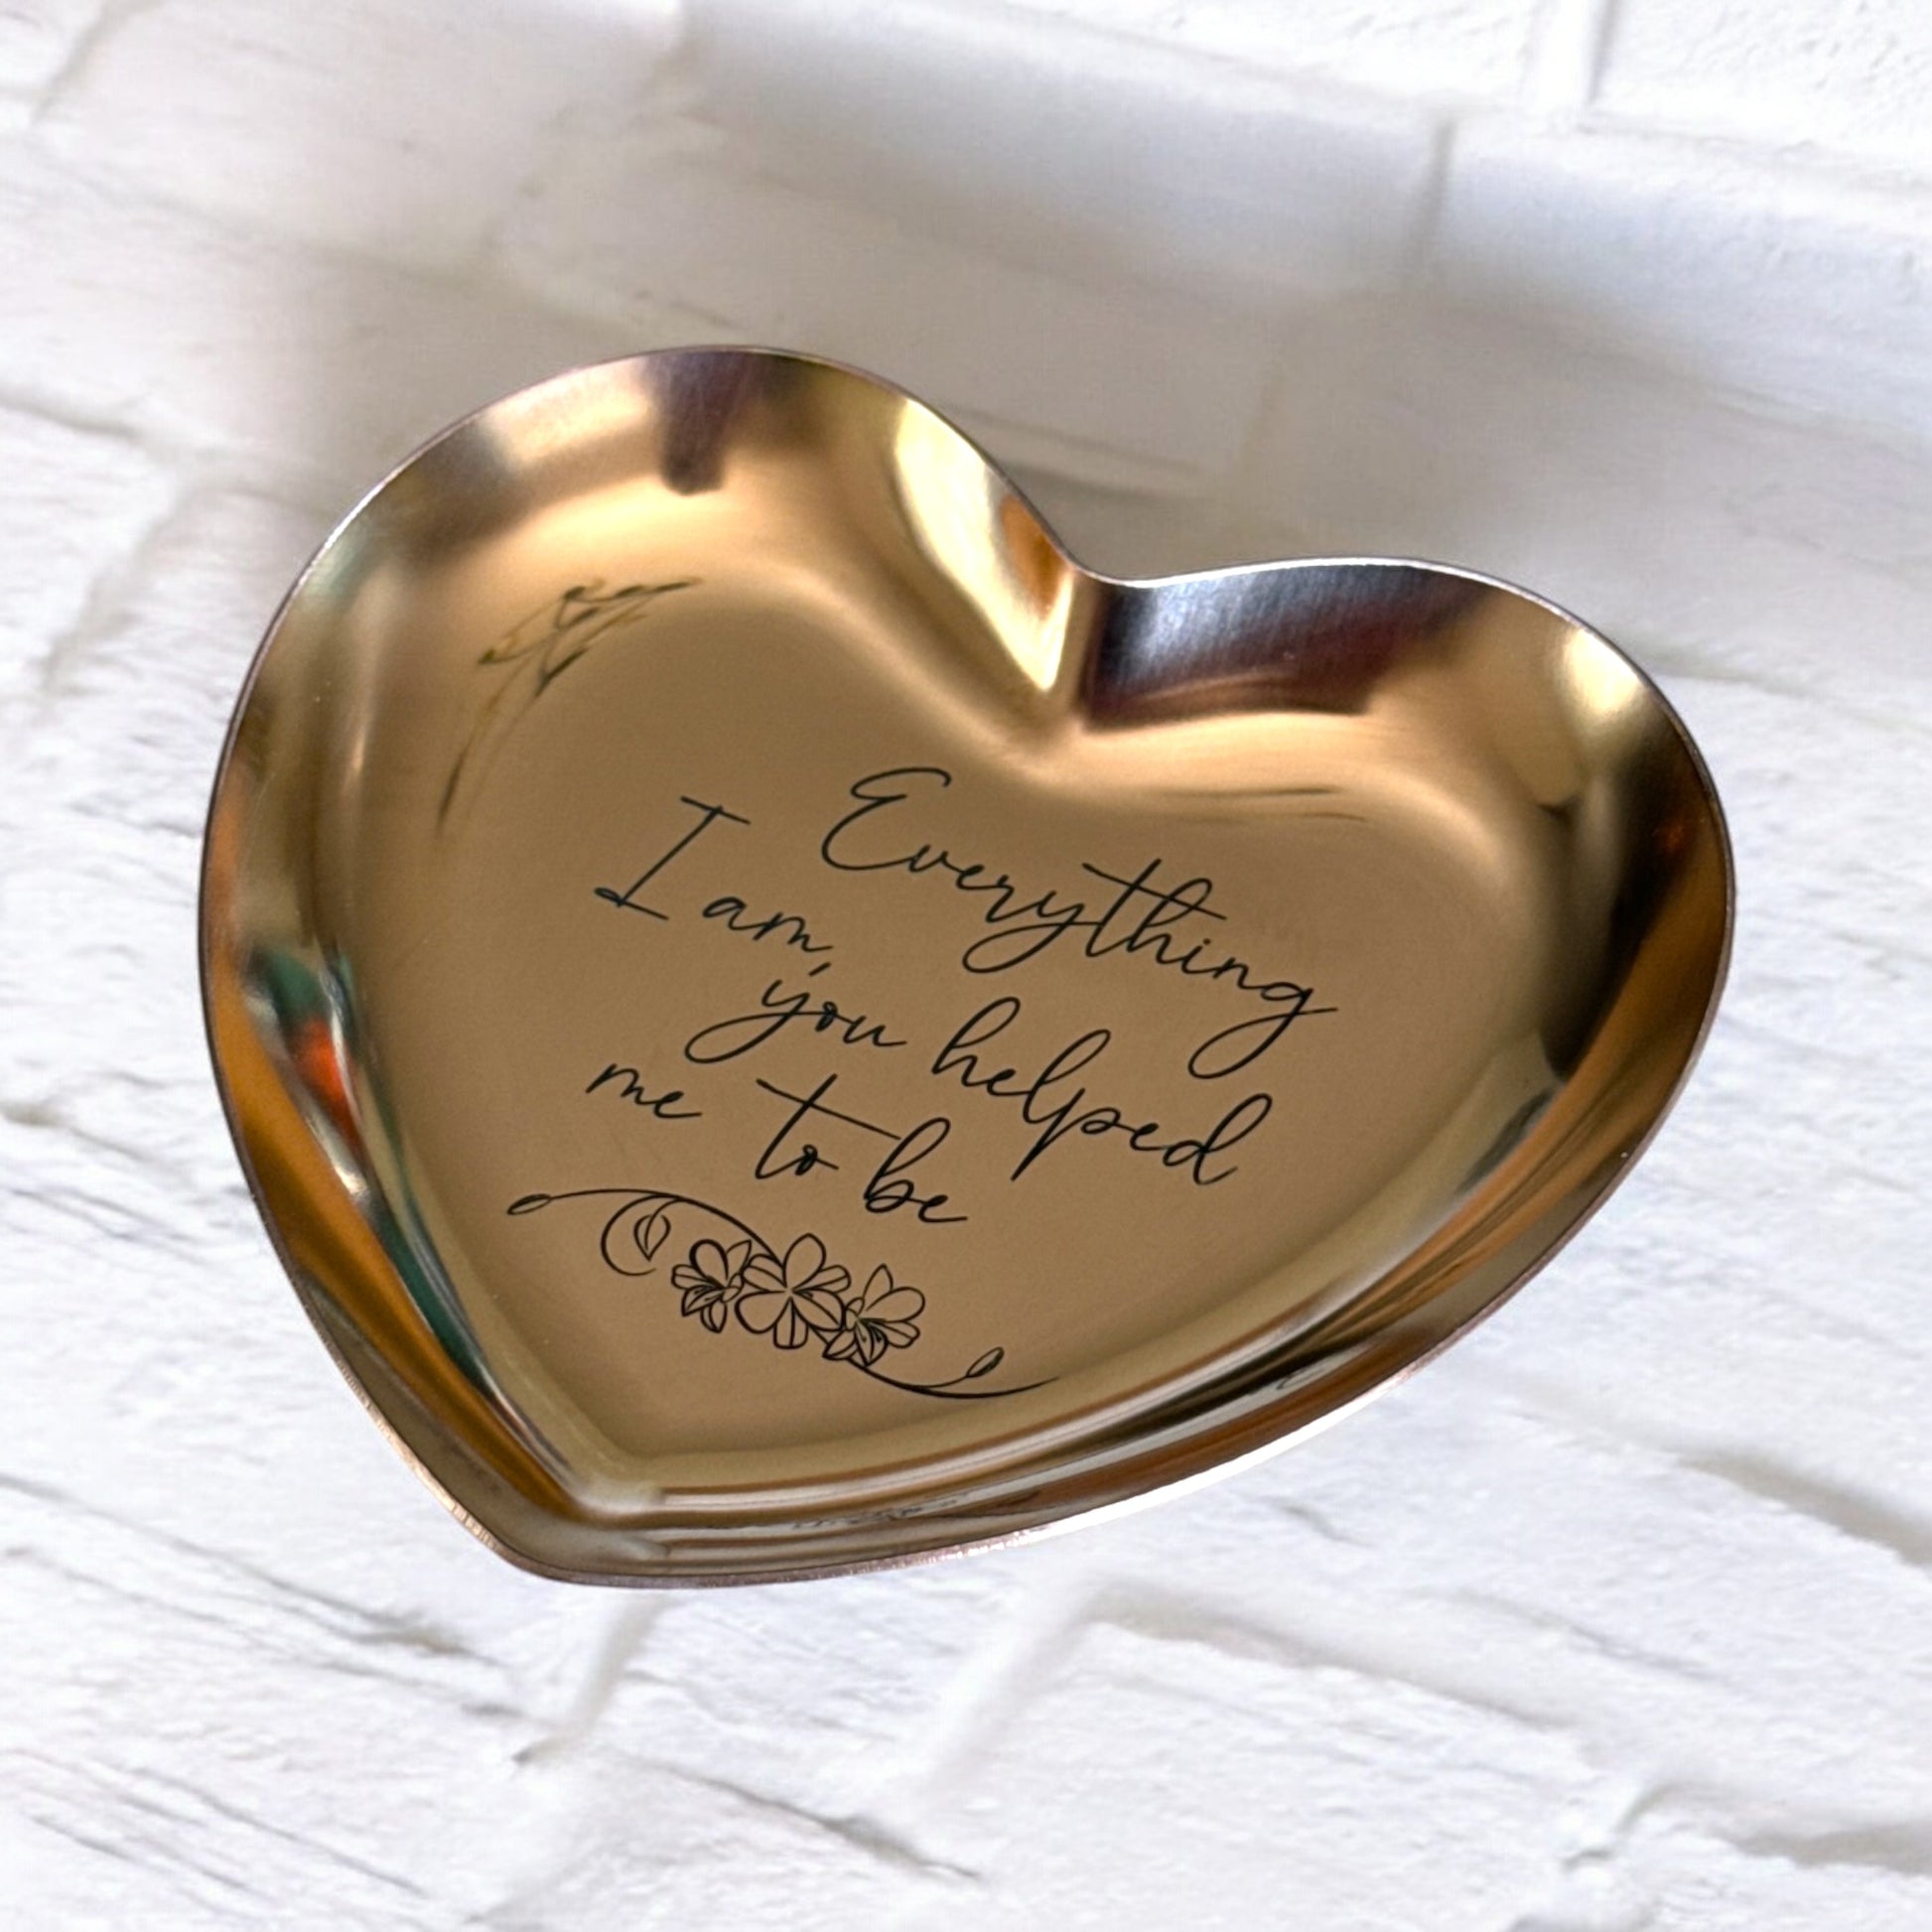 Everything
I am,
you helped
me to be